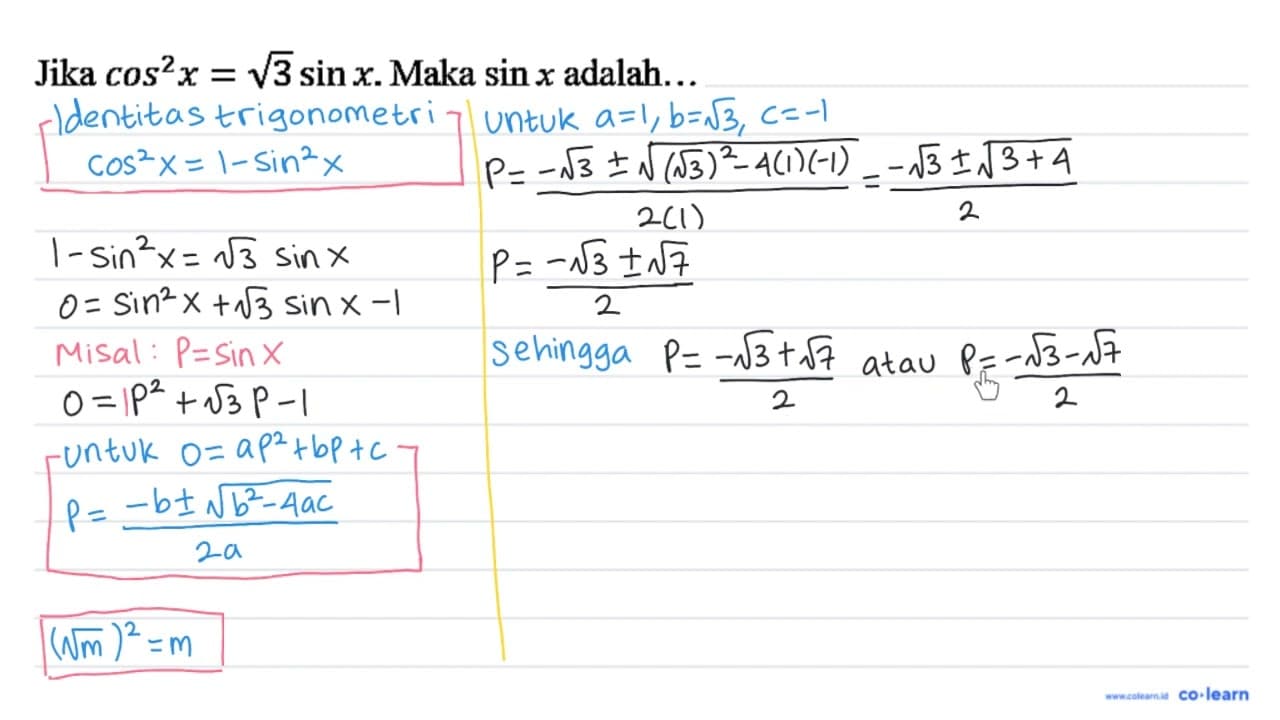 Jika cos²x = √3 sin x. Maka sin x adalah...
Identitas trigonometri
cos²x = 1 - sin²x
1 - sin²x = √3 sin x
0 = sin²x + √3 sin x - 1
Misal : P = sin x
0 = 1P² + √3 P - 1
untuk 0 = ap² + bp + c
P = (-b ± √(b² - 4ac)) / 2a
(√m)² = m
untuk a=1, b=√3, c=-1
P = (-√3 ± √((√3)² - 4(1)(-1))) / 2(1) = (-√3 ± √(3+4)) / 2
P = (-√3 ± √7) / 2
sehingga P = (-√3+√7) / 2 atau P = (-√3-√7) / 2
www.colearn.id co·learn